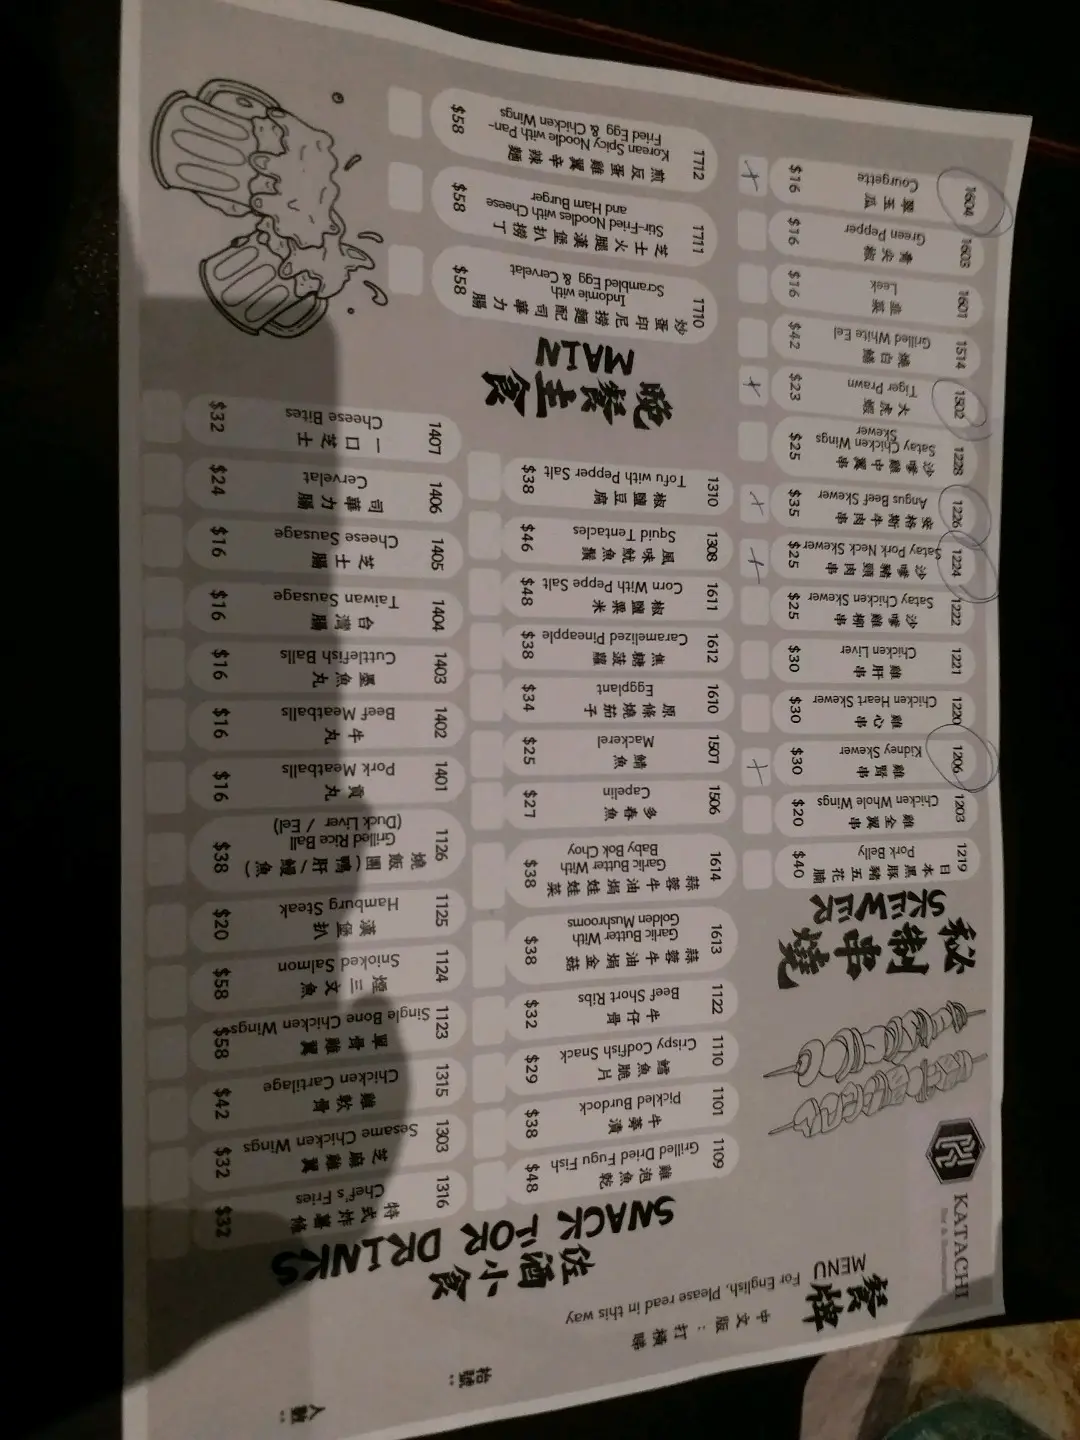 KATACHI
餐牌
MENU
中文版：打橫睇
For English, Please read in this way
人數：
枱號：
秘制串燒
SKEWER
1219
日本黑豚豬五花腩
Pork Belly
$40
1203
雞全翼串
Chicken Whole Wings
$20
1206
雞腎串
Kidney Skewer
$30
1220
雞心串
Chicken Heart Skewer
$30
1221
雞肝串
Chicken Liver
$30
1222
沙嗲雞柳串
Satay Chicken Skewer
$25
1224
沙嗲豬頸肉串
Satay Pork Neck Skewer
$25
1226
安格斯牛肉串
Angus Beef Skewer
$35
1228
沙嗲雞中翼串
Satay Chicken Wings
Skewer
$25
1502
大虎蝦
Tiger Prawn
$23
1514
燒白鱔
Grilled White Eel
$42
1601
韭菜
Leek
$16
1603
青尖椒
Green Pepper
$16
1604
翠玉瓜
Courgette
$16
佐酒小食
SNACK FOR DRINKS
1109
雞泡魚乾
Grilled Dried Fugu Fish
$48
1101
牛蒡漬
Pickled Burdock
$38
1110
鱈魚脆片
Crispy Codfish Snack
$29
1122
牛仔骨
Beef Short Ribs
$32
1613
蒜蓉牛油焗金菇
Garlic Butter With
Golden Mushrooms
$38
1614
蒜蓉牛油焗娃娃菜
Garlic Butter With
Baby Bok Choy
$38
1506
多春魚
Capelin
$27
1507
鯖魚
Mackerel
$25
1610
原條燒茄子
Eggplant
$34
1612
焦糖菠蘿
Caramelized Pineapple
$38
1611
椒鹽粟米
Corn With Peppe Salt
$48
1308
風味魷魚鬚
Squid Tentacles
$46
1310
椒鹽豆腐
Tofu with Pepper Salt
$38
1316
特式炸薯條
Chef's Fries
$32
1303
芝麻雞翼
Sesame Chicken Wings
$32
1315
雞軟骨
Chicken Cartilage
$42
1123
單骨雞翼
Single Bone Chicken Wings
$58
1124
煙三文魚
Smoked Salmon
$58
1125
漢堡扒
Hamburg Steak
$20
1126
燒飯團(鴨肝/鰻魚)
Grilled Rice Ball
(Duck Liver / Eel)
$38
1401
貢丸
Pork Meatballs
$16
1402
牛丸
Beef Meatballs
$16
1403
墨魚丸
Cuttlefish Balls
$16
1404
台灣腸
Taiwan Sausage
$16
1405
芝士腸
Cheese Sausage
$16
1406
司華力腸
Cervelat
$24
1407
一口芝士
Cheese Bites
$32
晚餐主食
MAIN
1710
炒蛋印尼撈麵配司華力腸
Indomie with
Scrambled Egg & Cervelat
$58
1711
芝士火腿漢堡扒撈丁
Stir-Fried Noodles with Cheese
and Ham Burger
$58
1712
煎反蛋雞翼辛辣麵
Korean Spicy Noodle with Pan-
Fried Egg & Chicken Wings
$58